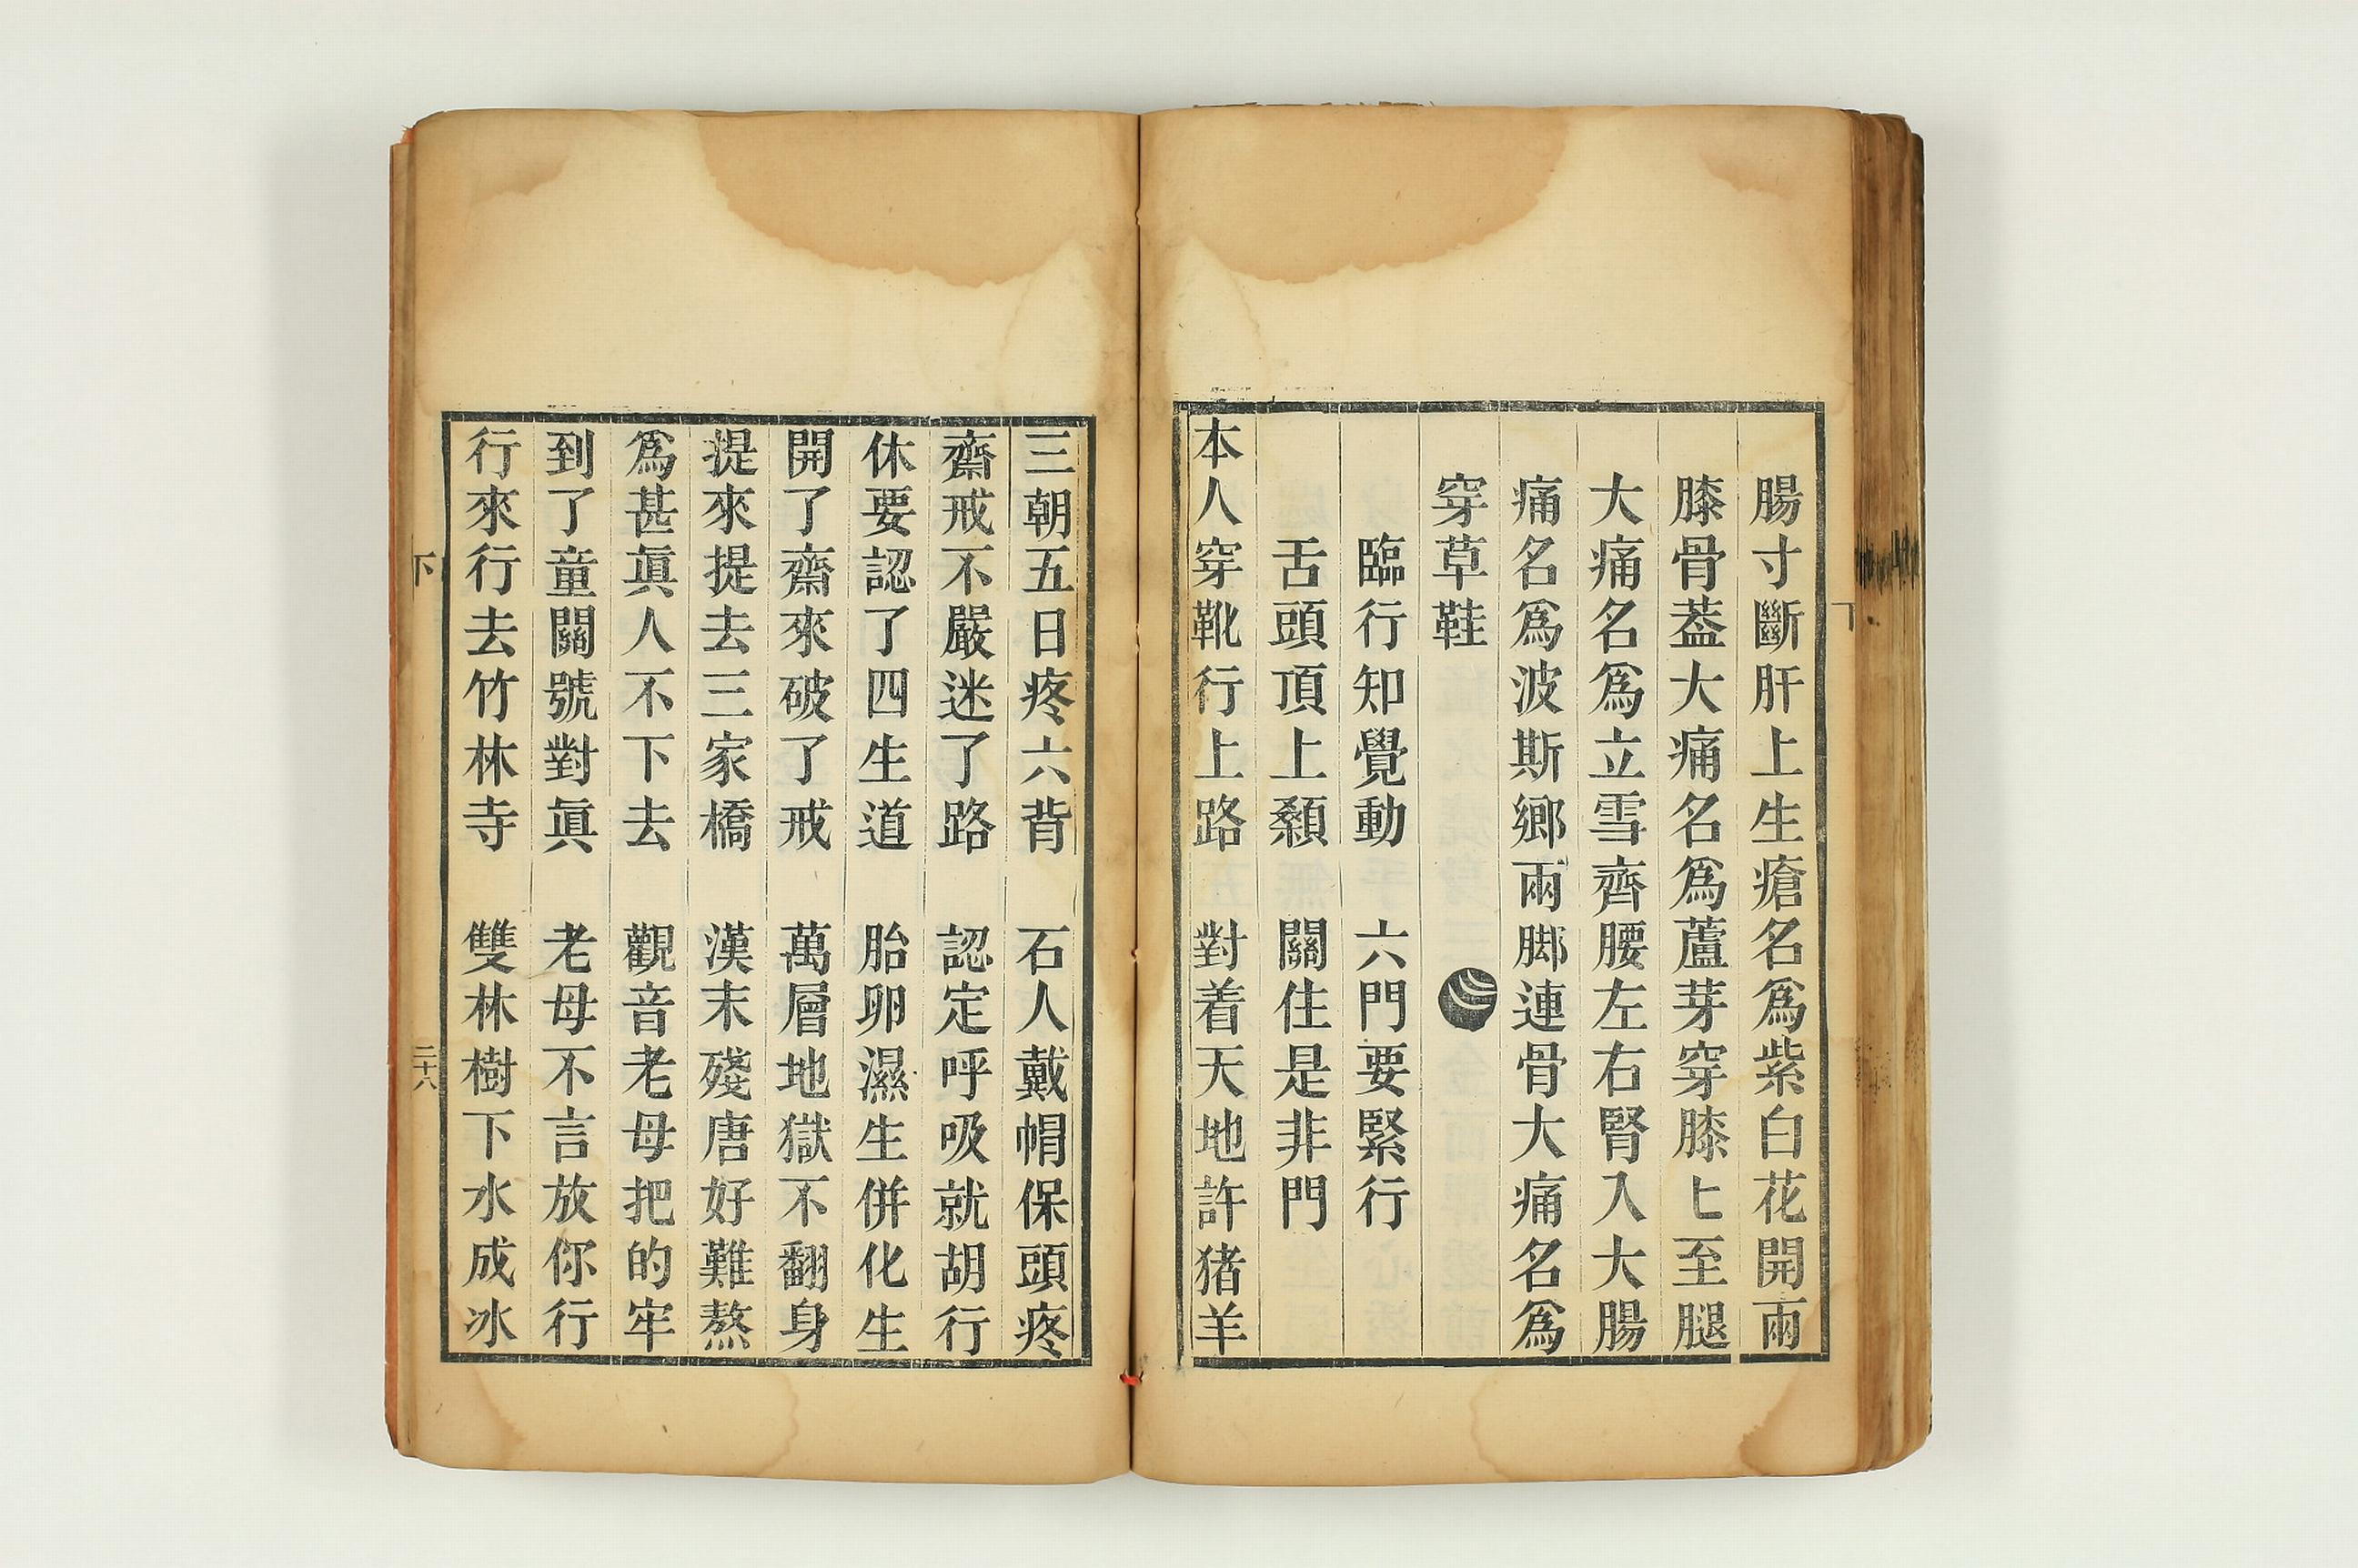 腸寸斷肝上生瘡名爲紫白花開兩
膝骨葢大痛名爲蘆芽穿膝上至腿
大痛名爲立雪齊腰左右腎入大腸
痛名爲波斯鄉兩脚連骨大痛名爲
穿草鞋
臨行知覺動　六門要緊行
舌頭頂上顙　關住是非門
本人穿靴行上路　對着天地許猪羊
三朝五日疼六背　石人戴帽保頭疼
齋戒不嚴迷了路　認定呼吸就胡行
休要認了四生道　胎卵濕生併化生
開了齋來破了戒　萬層地獄不翻身
提來提去三家橋　漢末殘唐好難熬
爲甚眞人不下去　觀音老母把的牢
到了童關號對眞　老母不言放你行
行來行去竹林寺　雙林樹下水成冰
下
二十八